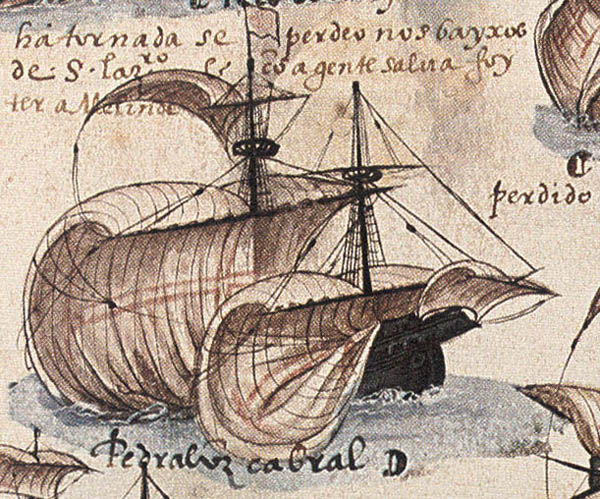 ha tornada se perdeo nos bayxos
de S. lazro e cõ a gente salua foy
ter a Melinde
perdido
Pedraluz cabral D